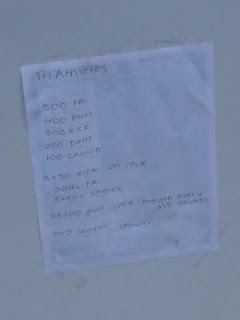 Tri Athletes
500 FR
400 Pull
300 Kick
200 Drill
100 choice
8x50 Kick on
odds FR
Evens choice
pull breath every
strokes
200 warm down